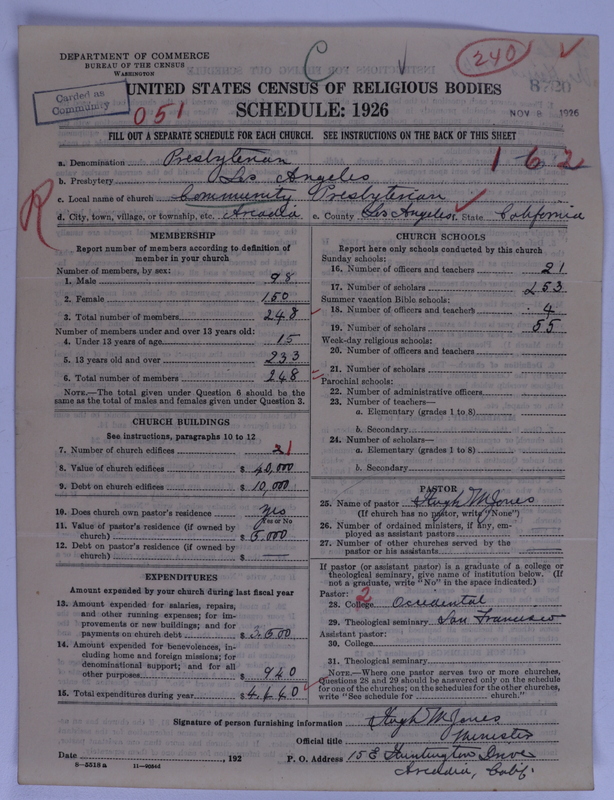 DEPARTMENT OF COMMERCE
BUREAU OF THE CENSUS
WASHINGTON
C
240
Carded as
Community
051
UNITED STATES CENSUS OF RELIGIOUS BODIES
SCHEDULE: 1926
NOV 8 1926
FILL OUT A SEPARATE SCHEDULE FOR EACH CHURCH. SEE INSTRUCTIONS ON THE BACK OF THIS SHEET
a. Denomination Presbyterian
1 6 2
b. Presbytery Los Angeles
c. Local name of church Community Presbyterian
R
d. City, town, village, or township, etc. Arcadia e. County Los Angeles f. State California
MEMBERSHIP
Report number of members according to definition of
member in your church
Number of members, by sex:
1. Male 98
2. Female 150
3. Total number of members 248
Number of members under and over 13 years old:
4. Under 13 years of age 15
5. 13 years old and over 233
6. Total number of members 248
NOTE.—The total given under Question 6 should be
the same as the total of males and females given under Question 3.
CHURCH BUILDINGS
See instructions, paragraphs 10 to 12
7. Number of church edifices 1
8. Value of church edifices $ 40,000
9. Debt on church edifices $ 10,000
10. Does church own pastor's residence yes
Yes or No
11. Value of pastor's residence (if owned by
church) $ 5,000
12. Debt on pastor's residence (if owned by
church) $ —
EXPENDITURES
Amount expended by your church during last fiscal year
13. Amount expended for salaries, repairs,
and other running expenses; for im-
provements or new buildings; and for
payments on church debt $
14. Amount expended for benevolences, in-
cluding home and foreign missions; for
denominational support; and for all
other purposes $ 940
15. Total expenditures during year $
CHURCH SCHOOLS
Report here only schools conducted by this church
Sunday schools:
16. Number of officers and teachers 21
17. Number of scholars 253
Summer vacation Bible schools:
18. Number of officers and teachers 4
19. Number of scholars 55
Week-day religious schools:
20. Number of officers and teachers
21. Number of scholars
Parochial schools:
22. Number of administrative officers
23. Number of teachers—
a. Elementary (grades 1 to 8)
b. Secondary
24. Number of scholars—
a. Elementary (grades 1 to 8)
b. Secondary
PASTOR
25. Name of pastor Hugh M Jones
(If church has no pastor, write "None")
26. Number of ordained ministers, if any, em-
ployed as assistant pastors
27. Number of other churches served by the
pastor or his assistants
If pastor (or assistant pastor) is a graduate of a college or
theological seminary, give name of institution below. (If
not a graduate, write "No" in the space indicated.)
Pastor: 2
28. College Occidental
29. Theological seminary San Francisco
Assistant pastor:
30. College
31. Theological seminary
NOTE.—Where one pastor serves two or more churches,
Questions 28 and 29 should be answered only on the schedule
for one of the churches; on the schedules for the other churches,
write "See schedule for church."
Signature of person furnishing information Hugh M Jones
Official title Minister
Date , 192 P. O. Address 15 E Huntington Drive
8—5518a 11—90564 Arcadia, Calif.